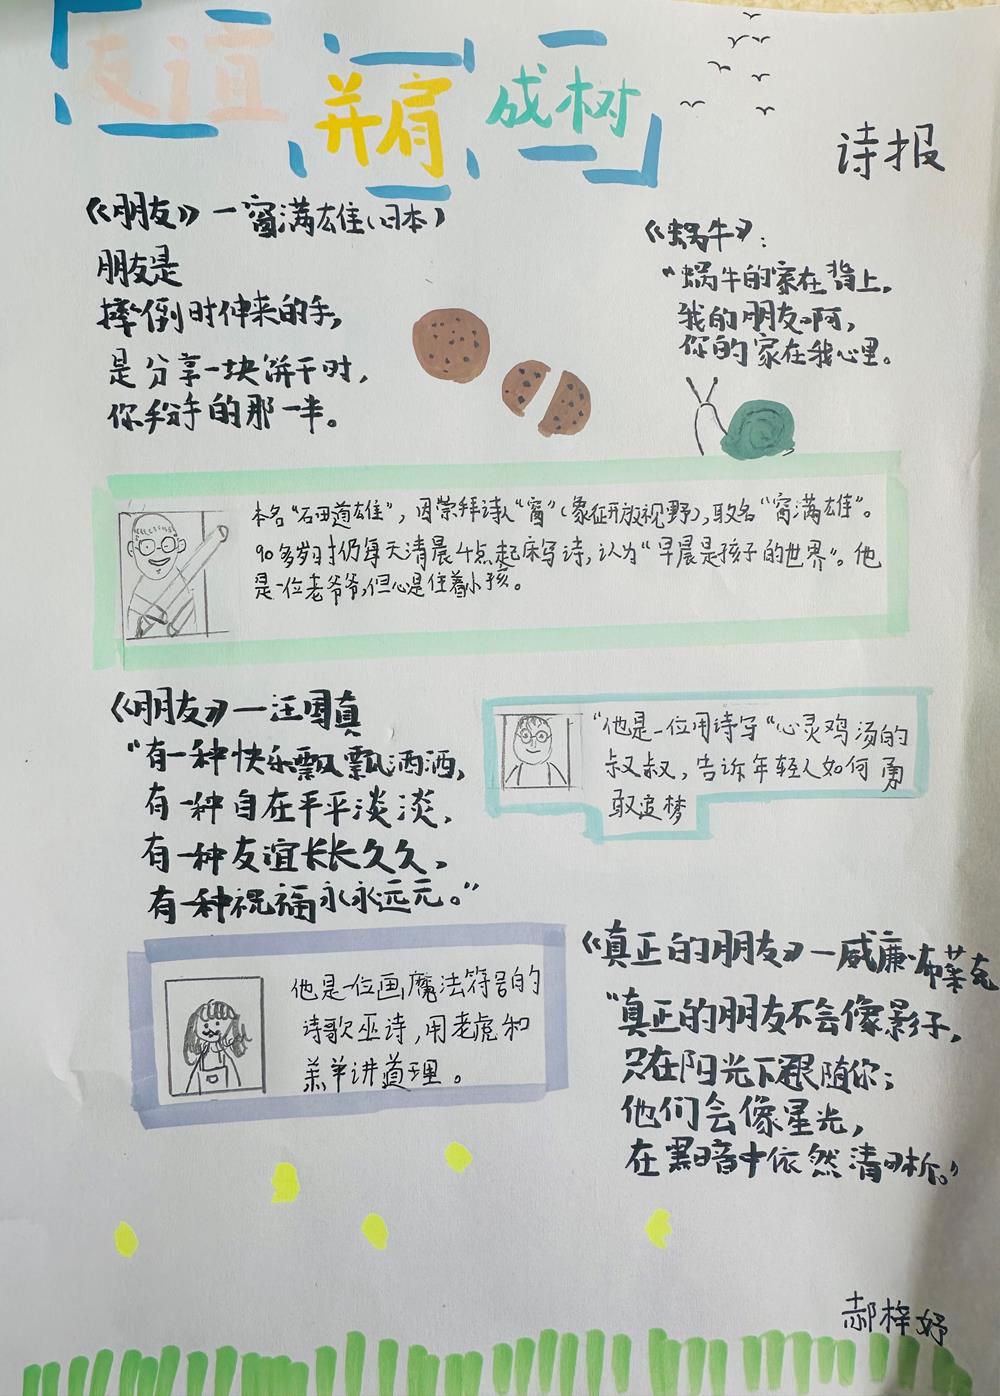 友谊
并肩
成树
诗报
《朋友》一窗满雄(日本)
朋友是
摔倒时伸来的手,
是分享一块饼干时,
你手的那一半。
《蜗牛》:
“蜗牛的家在背上,
我的朋友啊,
你的家在我心里。
本名“石田道雄”,因崇拜诗人“窗”(象征开放视野),取名“窗满雄”。
90多岁时仍每天清晨4点起床写诗,认为“早晨是孩子的世界”。他
是一位老爷爷,但心是住着小孩。
《朋友》一汪国真
“有一种快乐飘飘洒洒,
有一种自在平平淡淡,
有一种友谊长长久久,
有一种祝福永永远元。”
“他是一位用诗写“心灵鸡汤的
叔叔,告诉年轻人如何勇
敢追梦
他是一位画魔法符号的
诗歌巫诗,用老虎和
羔羊讲道理。
《真正的朋友》一威廉·布莱克
“真正的朋友不会像影子,
只在阳光下跟随你;
他们会像星光,
在黑暗中依然清晰。”
郝梓妤